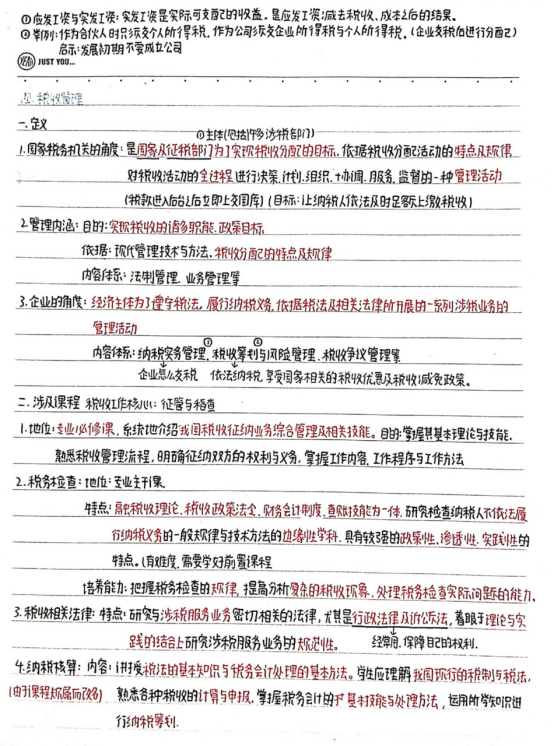 ①应发工资与实发工资：实发工资是实际可支配的收益。是应发工资减去税收、成本之后的结果。
②举例：作为合伙人时只须交个人所得税，作为公司须交企业所得税与个人所得税。（企业交税后进行分配）
启示：发展初期不要成立公司
YEAH JUST YOU...
四、税收管理
一、定义
①主体（包括许多涉税部门）
1.国家税务机关的角度：是国家及征税部门为了实现税收分配的目标，依据税收分配活动的特点及规律
对税收活动的全过程进行决策、计划、组织、协调、服务、监督的一种管理活动
（税款进入后以后立即上交国库）（目标：让纳税人依法及时足额上缴税收）
2.管理内涵：目的：实现税收的诸多职能、政策目标
依据：现代管理技术与方法、税收分配的特点及规律
内容体系：法制管理、业务管理等
3.企业的角度：经济主体为了遵守税法，履行纳税义务，依据税法及相关法律所开展的一系列涉税业务的
管理活动
① ②
内容体系：纳税实务管理、税收筹划与风险管理、税收争议管理等
企业怎么交税 依法纳税，享受国家相关的税收优惠及税收减免政策。
二、涉及课程 税收工作核心：征管与稽查
1.地位：专业必修课，系统地介绍我国税收征纳业务综合管理及相关技能。目的：掌握其基本理论与技能、
熟悉税收管理流程，明确征纳双方的权利与义务，掌握工作内容、工作程序与工作方法
2.税务检查：地位：专业主干课
特点：融税收理论、税收政策法令、财务会计制度、查账技能为一体，研究检查纳税人不依法履
行纳税义务的一般规律与技术方法的边缘性学科，具有较强的政策性、渗透性、实践性的
特点。（有难度，需要学好前置课程
培养能力：把握税务检查的规律，提高分析复杂的税收现象、处理税务检查实际问题的能力。
3.税收相关法律：特点：研究与涉税服务业务密切相关的法律，尤其是行政法律及诉讼法，着眼于理论与实
践的结合上研究涉税服务业务的规范性。 经常用，保障自己的权利.
4.纳税核算：内容：讲授税法的基本知识与税务会计处理的基本方法。学生应理解我国现行的税制与税法，
（由于课程归属而改名） 熟悉各种税收的计算与申报，掌握税务会计的基本技能与处理方法，运用所学知识进
行纳税筹划.